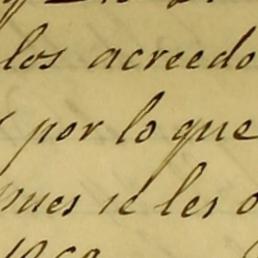 los acreedo
por lo que
nues se les o